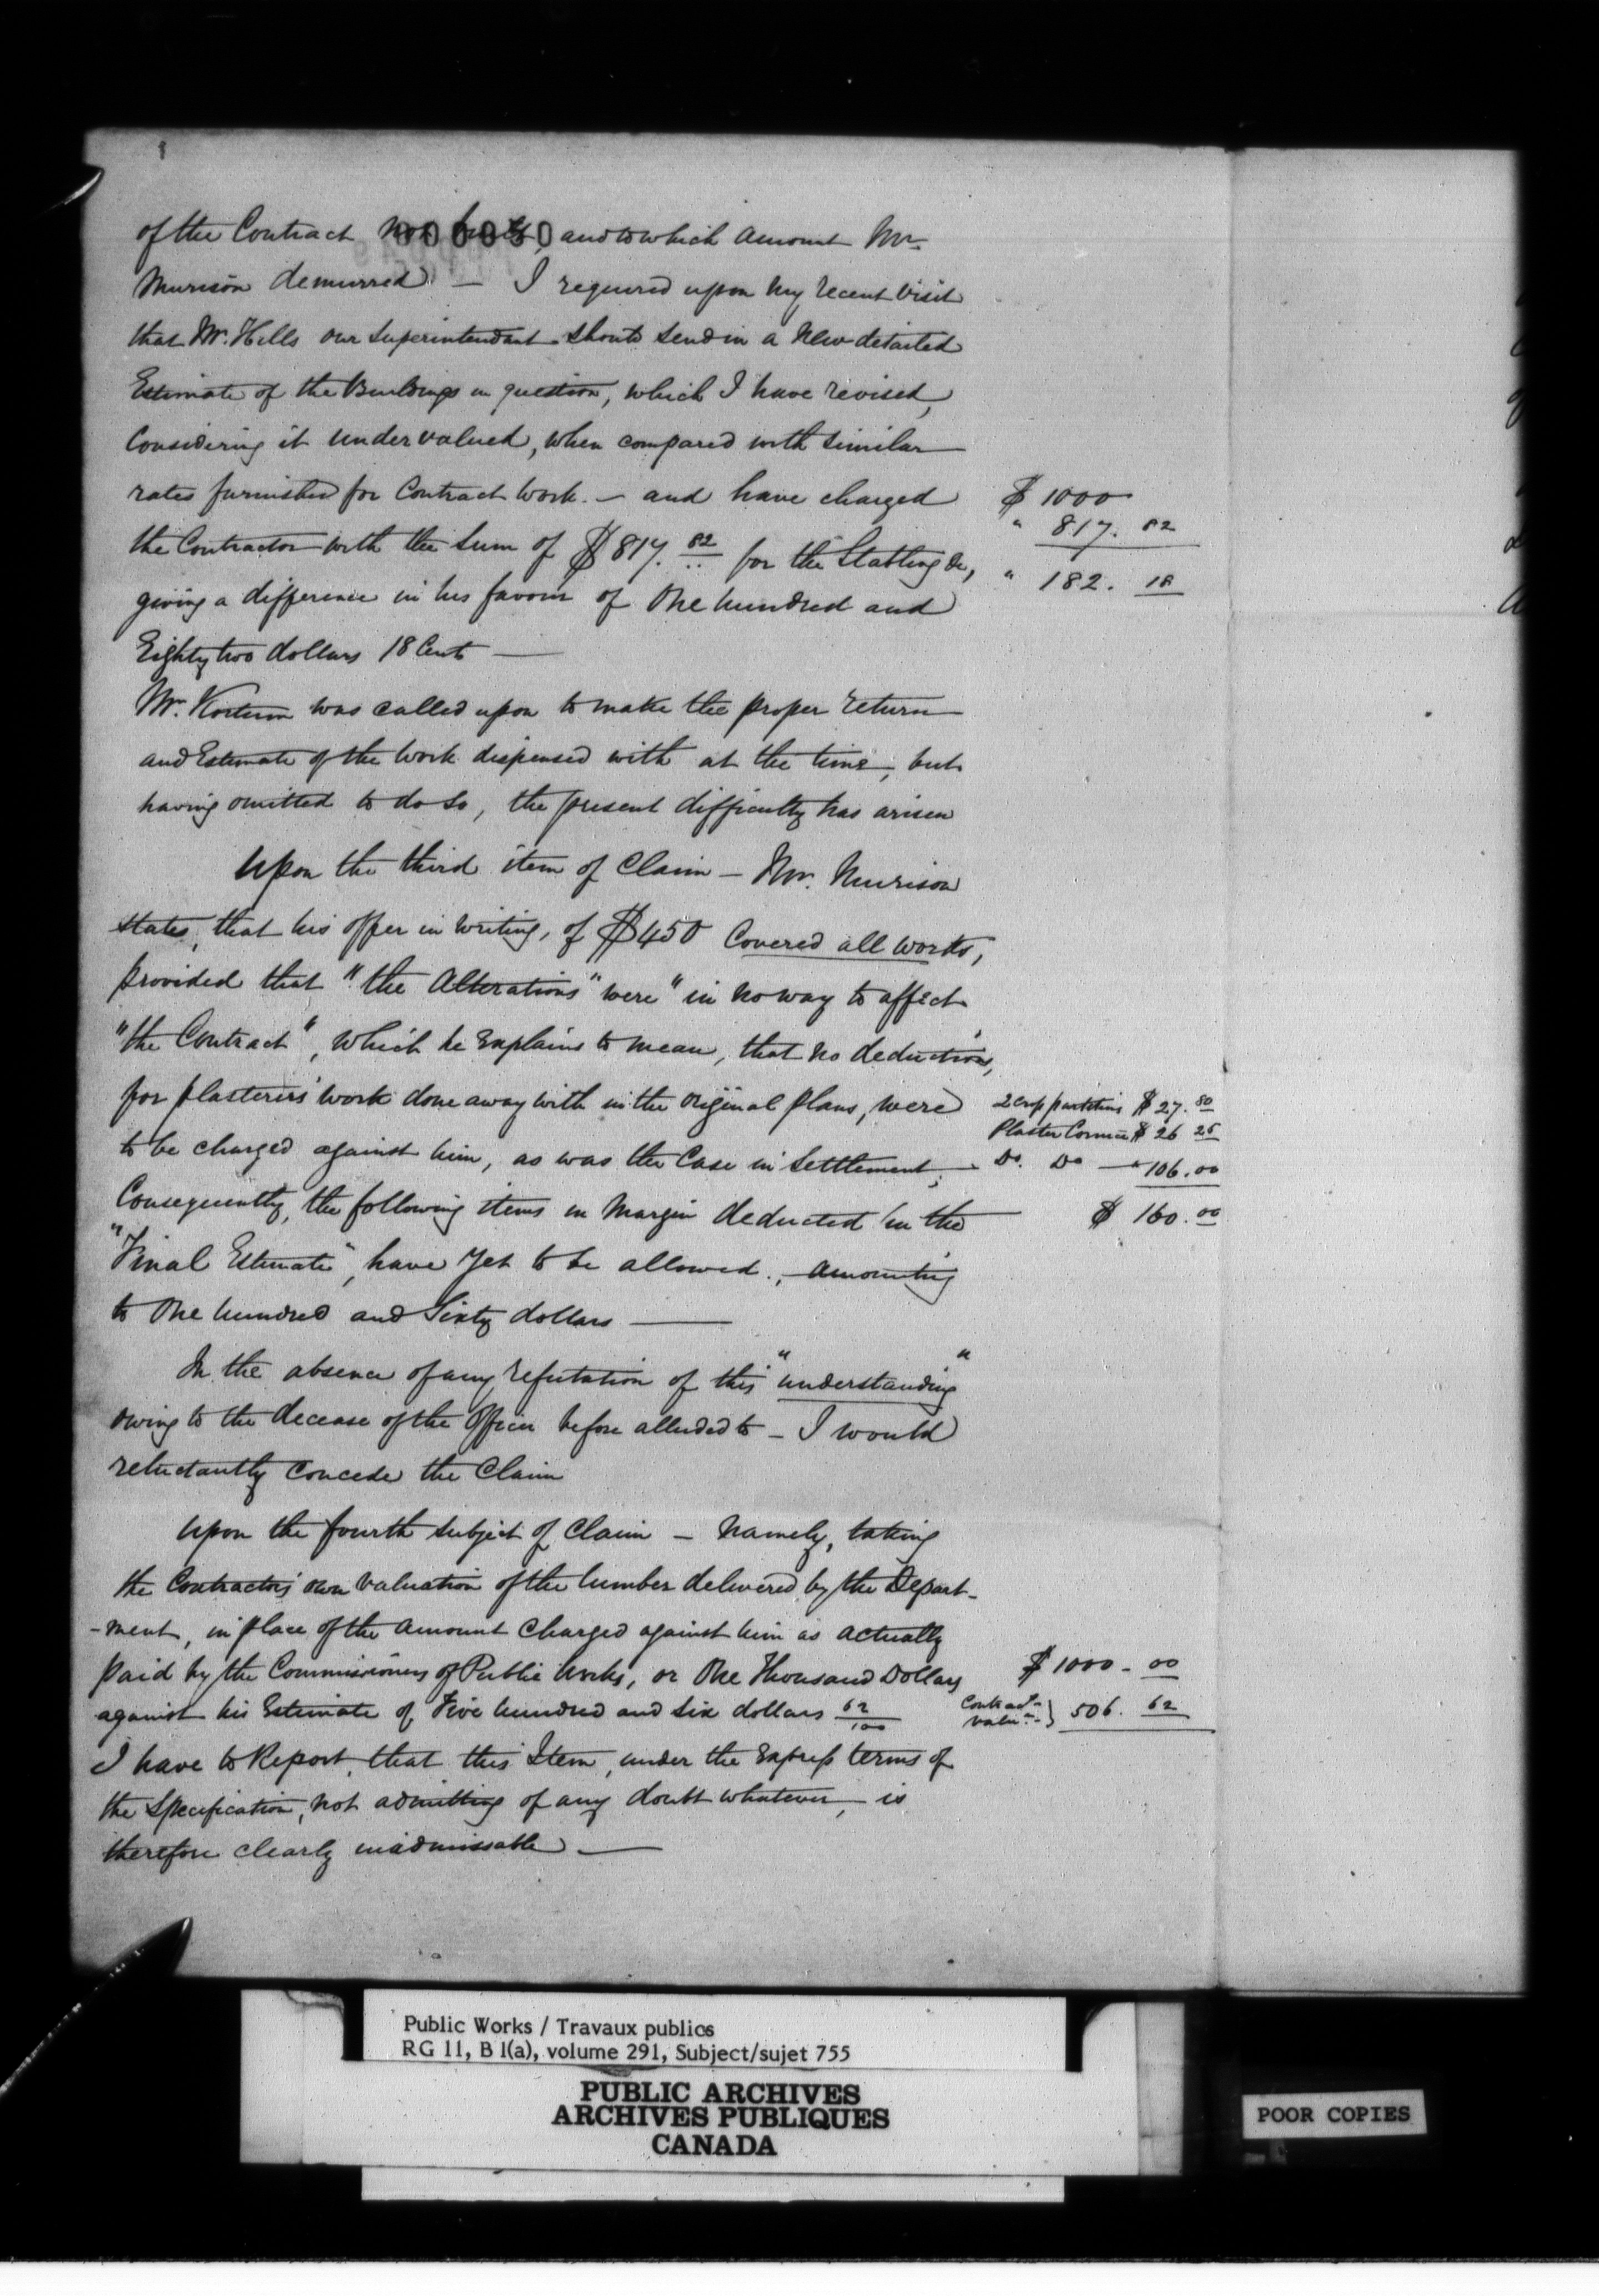 000050
of the Contract not built, and to which amount Mr.
Murison demurred. — I required upon my recent visit
that Mr. Hills our Superintendant should send in a New detailed
Estimate of the Buildings in question, which I have revised,
Considering it undervalued, when compared with similar
rates furnished for Contract Work. — and have charged
$ 1000
the Contractor with the Sum of $817. 82 for the Stabling &c,
" 817. 82
giving a difference in his favour of One hundred and
" 182. 18
Eighty two dollars 18 Cents —
Mr. was called upon to make the proper return
and Estimate of the Work dispensed with at the time, but
having omitted to do so, the present difficulty has arisen
Upon the third item of Claim — Mr. Murison
states, that his offer in Writing, of $450 Covered all works,
provided that "the Alterations" were "in no way to affect
"the Contract", which he Explains to mean, that no deductions,
for plasterers' work done away with in the original plans, were
2 partitions $ 27. 80
to be charged against him, as was the Case in Settlement;
Plaster Cornice $ 26 25
Do. Do — " 106.00
Consequently, the following items in Margin deducted in the —
$ 160. 00
"Final Estimate", have yet to be allowed., amounting
to One hundred and Sixty dollars —
In the absence of any refutation of this "understanding"
owing to the decease of the Officer before alluded to — I would
reluctantly Concede the Claim
Upon the fourth subject of Claim — Namely, taking
the Contractors' own Valuation of the lumber delivered by the Depart-
-ment, in place of the Amount Charged against him as actually
paid by the Commissioners of Public Works, or One Thousand Dollars
$ 1000 - 00
against his Estimate of Five hundred and six dollars 62/100
Contract- valu.n } 506. 62
I have to Report, that this Item, under the Express terms of
the Specification, not admitting of any doubt whatever, is
therefore clearly inadmissable —
Public Works / Travaux publics
RG 11, B 1(a), volume 291, Subject/sujet 755
PUBLIC ARCHIVES
ARCHIVES PUBLIQUES
CANADA
POOR COPIES